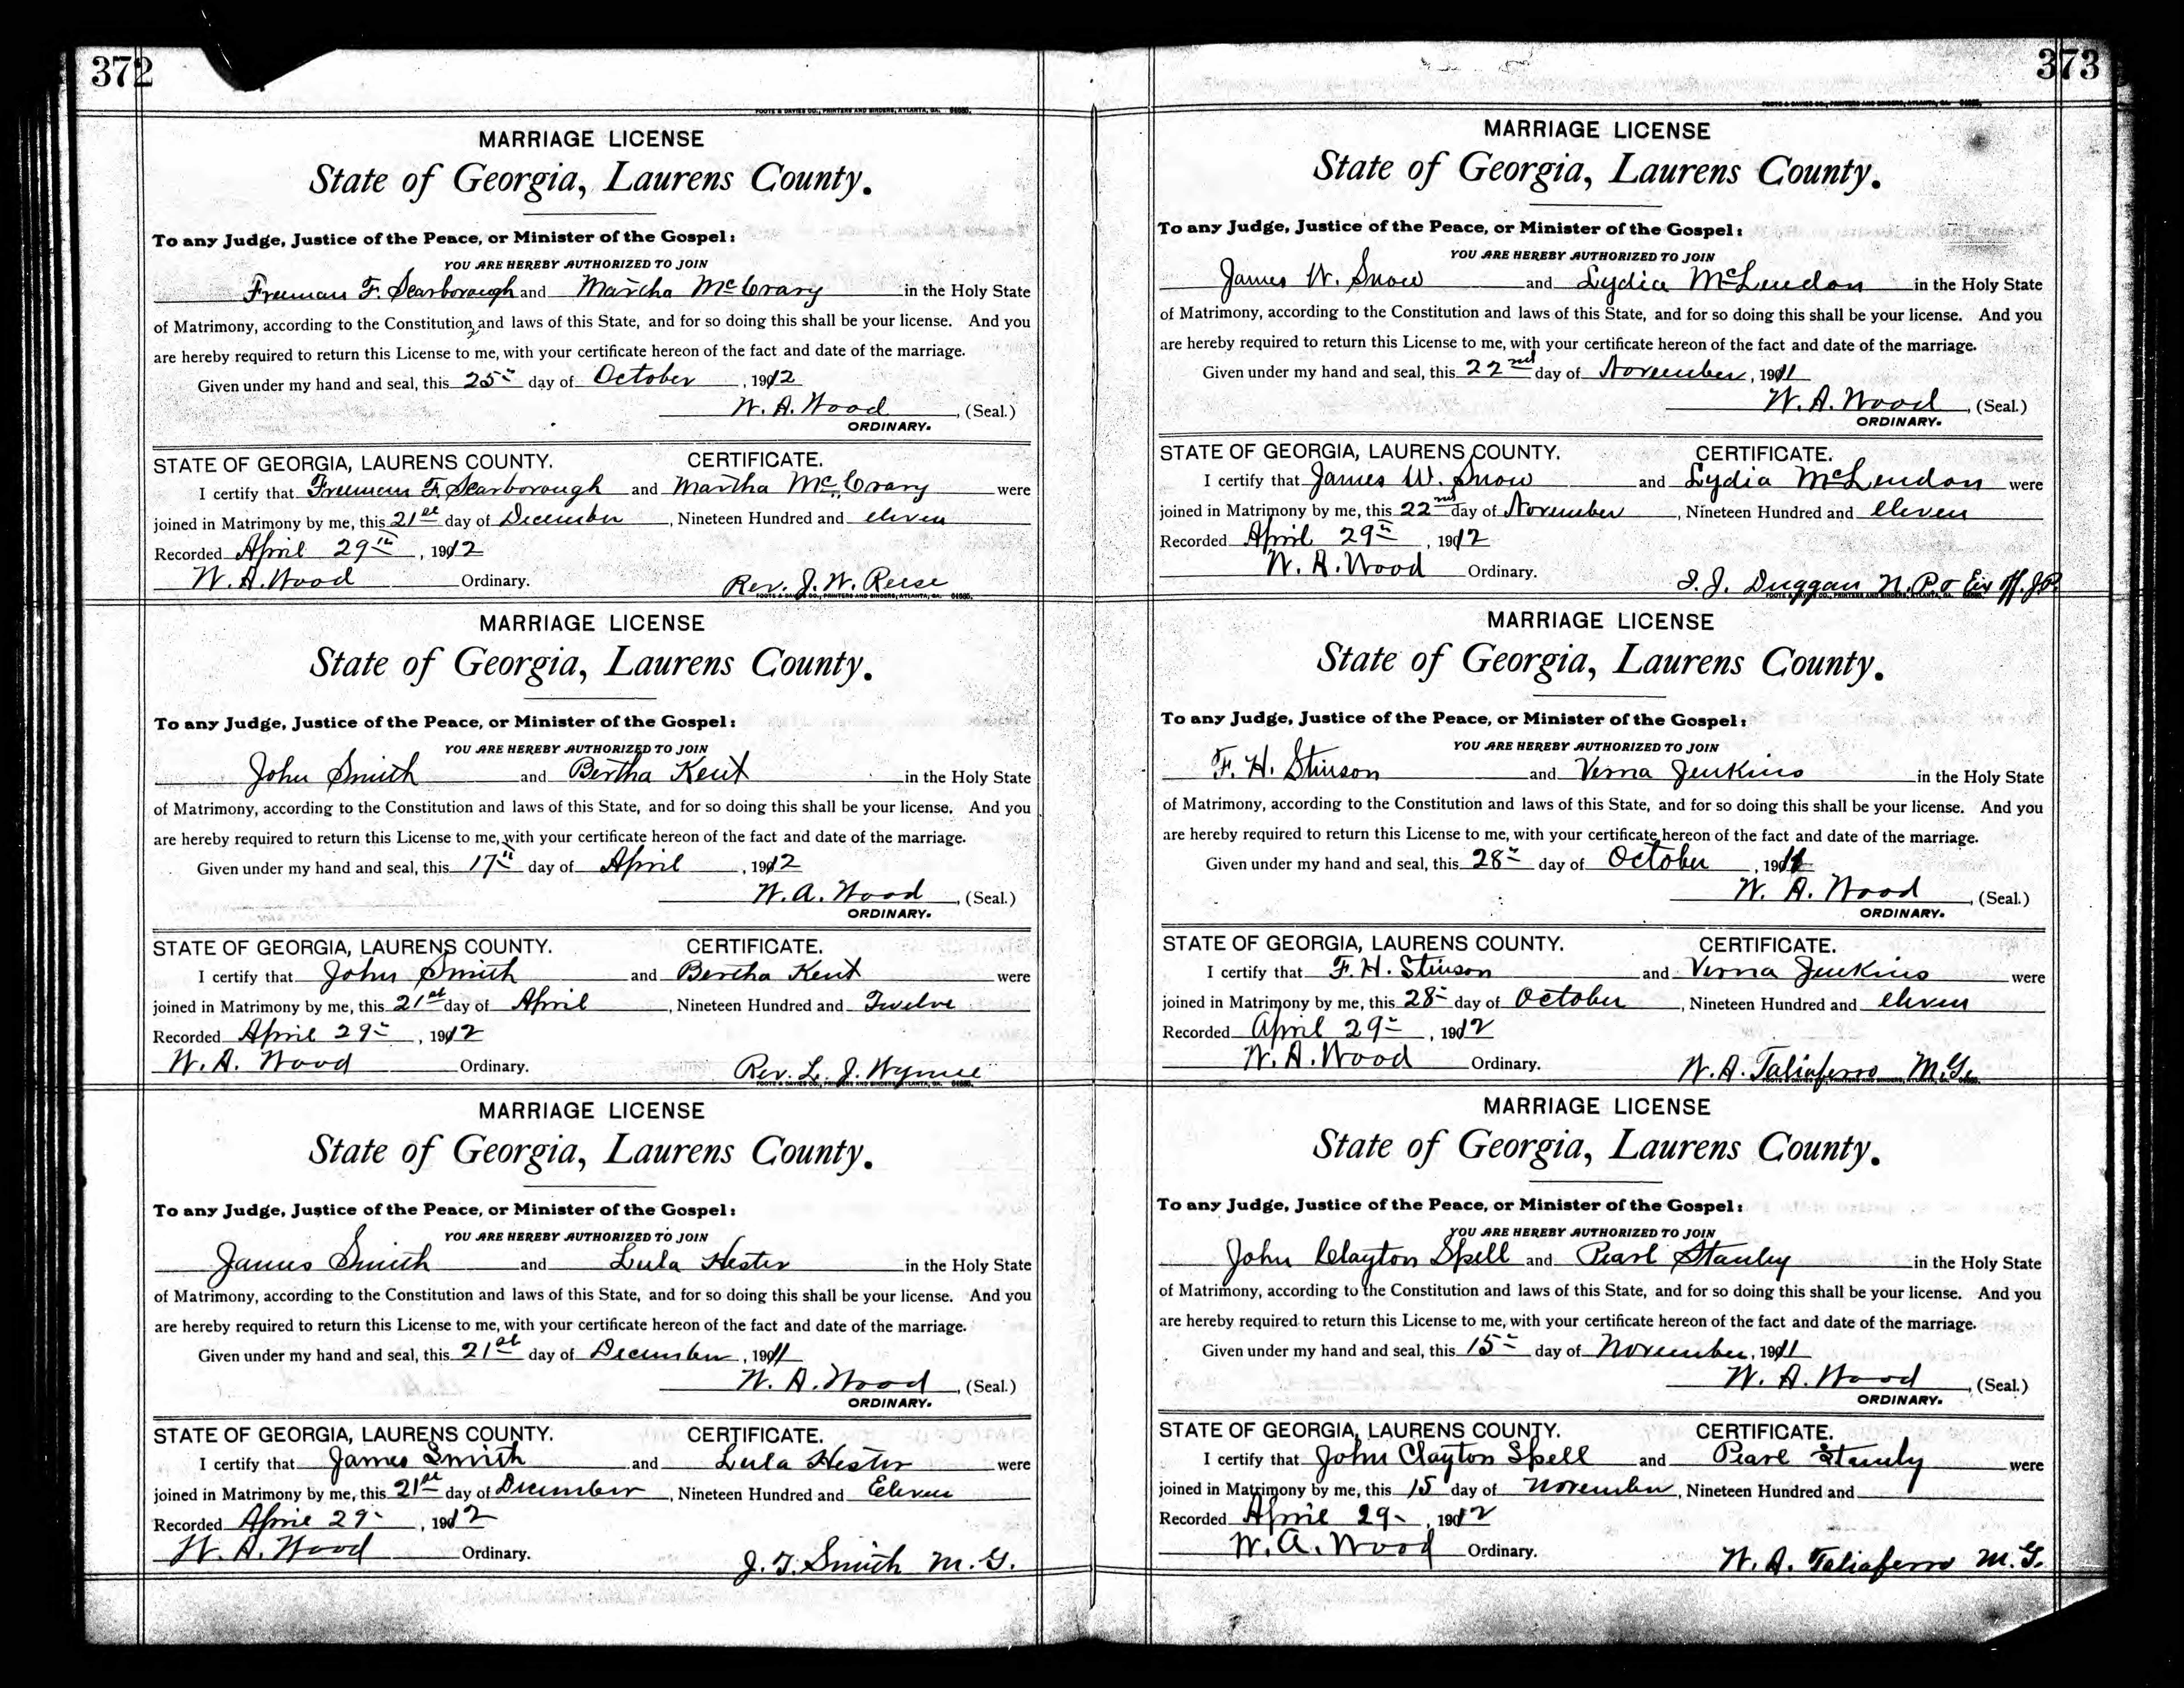 372
FOOTE & DAVIES CO., PRINTERS AND BINDERS, ATLANTA, GA.
MARRIAGE LICENSE
State of Georgia, Laurens County.
To any Judge, Justice of the Peace, or Minister of the Gospel:
YOU ARE HEREBY AUTHORIZED TO JOIN
Freeman F. Scarborough and Martha McCrary in the Holy State
of Matrimony, according to the Constitution and laws of this State, and for so doing this shall be your license. And you
are hereby required to return this License to me, with your certificate hereon of the fact and date of the marriage.
Given under my hand and seal, this 25 day of October, 1912
W. A. Wood, (Seal.)
ORDINARY.
STATE OF GEORGIA, LAURENS COUNTY. CERTIFICATE.
I certify that Freeman F. Scarborough and Martha McCrary were
joined in Matrimony by me, this 21st day of December, Nineteen Hundred and eleven
Recorded April 29th, 1912
W. A. Wood Ordinary.
Rev. J. W. Reese
FOOTE & DAVIES CO., PRINTERS AND BINDERS, ATLANTA, GA.
MARRIAGE LICENSE
State of Georgia, Laurens County.
To any Judge, Justice of the Peace, or Minister of the Gospel:
YOU ARE HEREBY AUTHORIZED TO JOIN
John Smith and Bertha Kent in the Holy State
of Matrimony, according to the Constitution and laws of this State, and for so doing this shall be your license. And you
are hereby required to return this License to me, with your certificate hereon of the fact and date of the marriage.
Given under my hand and seal, this 17th day of April, 1912
W. A. Wood, (Seal.)
ORDINARY.
STATE OF GEORGIA, LAURENS COUNTY. CERTIFICATE.
I certify that John Smith and Bertha Kent were
joined in Matrimony by me, this 21st day of April, Nineteen Hundred and Twelve
Recorded April 29, 1912
W. A. Wood Ordinary.
Rev. L. J. Wynne
FOOTE & DAVIES CO., PRINTERS AND BINDERS, ATLANTA, GA.
MARRIAGE LICENSE
State of Georgia, Laurens County.
To any Judge, Justice of the Peace, or Minister of the Gospel:
YOU ARE HEREBY AUTHORIZED TO JOIN
James Smith and Lula Hester in the Holy State
of Matrimony, according to the Constitution and laws of this State, and for so doing this shall be your license. And you
are hereby required to return this License to me, with your certificate hereon of the fact and date of the marriage.
Given under my hand and seal, this 21st day of December, 1911
W. A. Wood, (Seal.)
ORDINARY.
STATE OF GEORGIA, LAURENS COUNTY. CERTIFICATE.
I certify that James Smith and Lula Hester were
joined in Matrimony by me, this 21st day of December, Nineteen Hundred and Eleven
Recorded April 29, 1912
W. A. Wood Ordinary.
J. T. Smith M. G.
373
FOOTE & DAVIES CO., PRINTERS AND BINDERS, ATLANTA, GA.
MARRIAGE LICENSE
State of Georgia, Laurens County.
To any Judge, Justice of the Peace, or Minister of the Gospel:
YOU ARE HEREBY AUTHORIZED TO JOIN
James W. Snow and Lydia McLendon in the Holy State
of Matrimony, according to the Constitution and laws of this State, and for so doing this shall be your license. And you
are hereby required to return this License to me, with your certificate hereon of the fact and date of the marriage.
Given under my hand and seal, this 22nd day of November, 1911
W. A. Wood, (Seal.)
ORDINARY.
STATE OF GEORGIA, LAURENS COUNTY. CERTIFICATE.
I certify that James W. Snow and Lydia McLendon were
joined in Matrimony by me, this 22nd day of November, Nineteen Hundred and eleven
Recorded April 29, 1912
W. A. Wood Ordinary.
I. J. Duggan N. P. & Ex Off. J.P.
FOOTE & DAVIES CO., PRINTERS AND BINDERS, ATLANTA, GA.
MARRIAGE LICENSE
State of Georgia, Laurens County.
To any Judge, Justice of the Peace, or Minister of the Gospel:
YOU ARE HEREBY AUTHORIZED TO JOIN
F. H. Stinson and Verna Jenkins in the Holy State
of Matrimony, according to the Constitution and laws of this State, and for so doing this shall be your license. And you
are hereby required to return this License to me, with your certificate hereon of the fact and date of the marriage.
Given under my hand and seal, this 28 day of October, 1911
W. A. Wood, (Seal.)
ORDINARY.
STATE OF GEORGIA, LAURENS COUNTY. CERTIFICATE.
I certify that F. H. Stinson and Verna Jenkins were
joined in Matrimony by me, this 28 day of October, Nineteen Hundred and eleven
Recorded April 29, 1912
W. A. Wood Ordinary.
W. A. Taliaferro M. G.
FOOTE & DAVIES CO., PRINTERS AND BINDERS, ATLANTA, GA.
MARRIAGE LICENSE
State of Georgia, Laurens County.
To any Judge, Justice of the Peace, or Minister of the Gospel:
YOU ARE HEREBY AUTHORIZED TO JOIN
John Clayton Spell and Pearl Stanley in the Holy State
of Matrimony, according to the Constitution and laws of this State, and for so doing this shall be your license. And you
are hereby required to return this License to me, with your certificate hereon of the fact and date of the marriage.
Given under my hand and seal, this 15 day of November, 1911
W. A. Wood, (Seal.)
ORDINARY.
STATE OF GEORGIA, LAURENS COUNTY. CERTIFICATE.
I certify that John Clayton Spell and Pearl Stanly were
joined in Matrimony by me, this 15 day of November, Nineteen Hundred and
Recorded April 29, 1912
W. A. Wood Ordinary.
W. A. Taliaferro M. G.